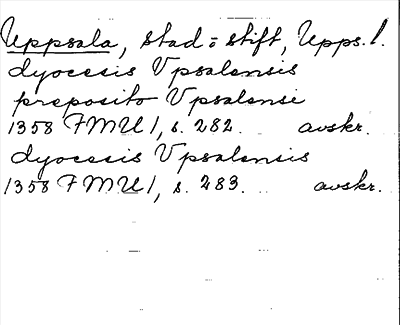 Uppsala, stad o stift, Upps. l.
dyocesis Vpsalensis
preposito Vpsalensi
1358 FMU 1, s. 282. avskr.
dyocesis Vpsalensis
1358 FMU 1, s. 283. avskr.